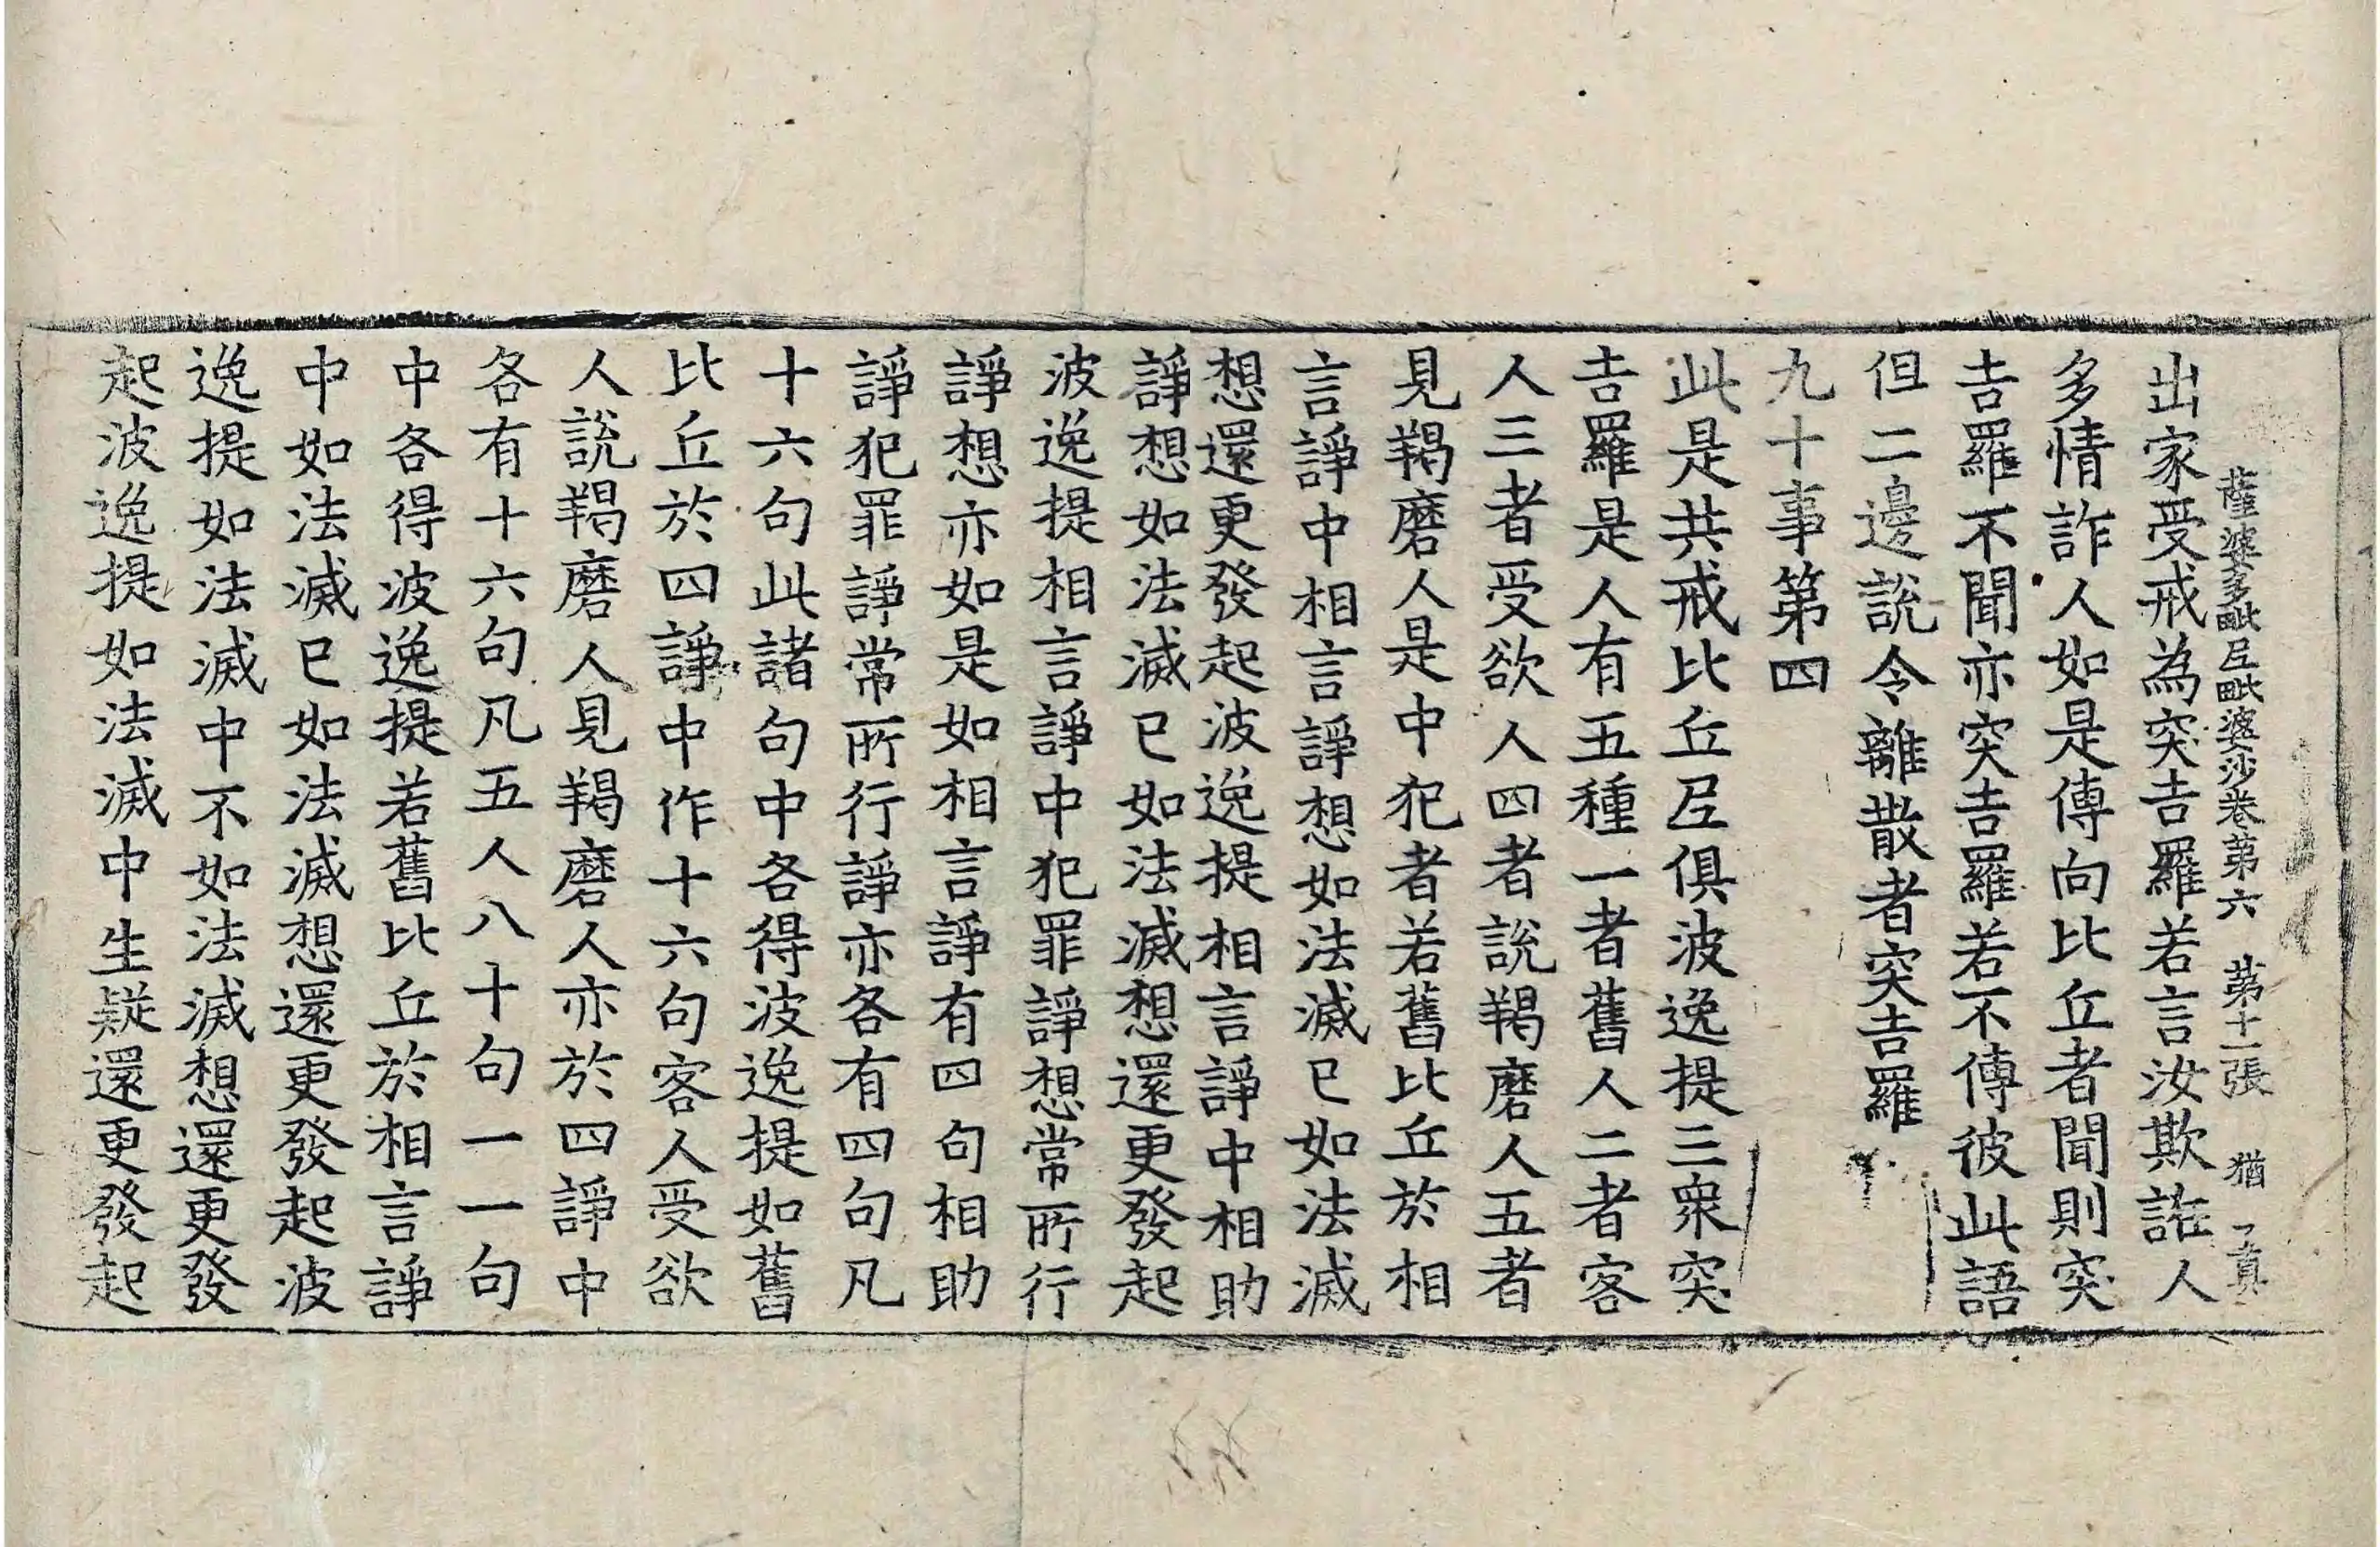 薩婆多毗尼毗婆沙卷第六　第十一張　猶
出家受戒為突吉羅若言汝欺誑人
多情詐人如是傳向比丘者聞則突
吉羅不聞亦突吉羅若不傳彼此語
但二邊說令離散者突吉羅
九十事第四
此是共戒比丘尼俱波逸提三衆突
吉羅是人有五種一者舊人二者客
人三者受欲人四者說羯磨人五者
見羯磨人是中犯者若舊比丘於相
言諍中相言諍想如法滅已如法滅
想還更發起波逸提相言諍中相助
諍想如法滅已如法滅想還更發起
波逸提相言諍中犯罪諍想常所行
諍想亦如是如相言諍有四句相助
諍犯罪諍常所行諍亦各有四句凡
十六句此諸句中各得波逸提如舊
比丘於四諍中作十六句客人受欲
人說羯磨人見羯磨人亦於四諍中
各有十六句凡五人八十句一一句
中各得波逸提若舊比丘於相言諍
中如法滅已如法滅想還更發起波
逸提如法滅中不如法滅想還更發
起波逸提如法滅中生疑還更發起